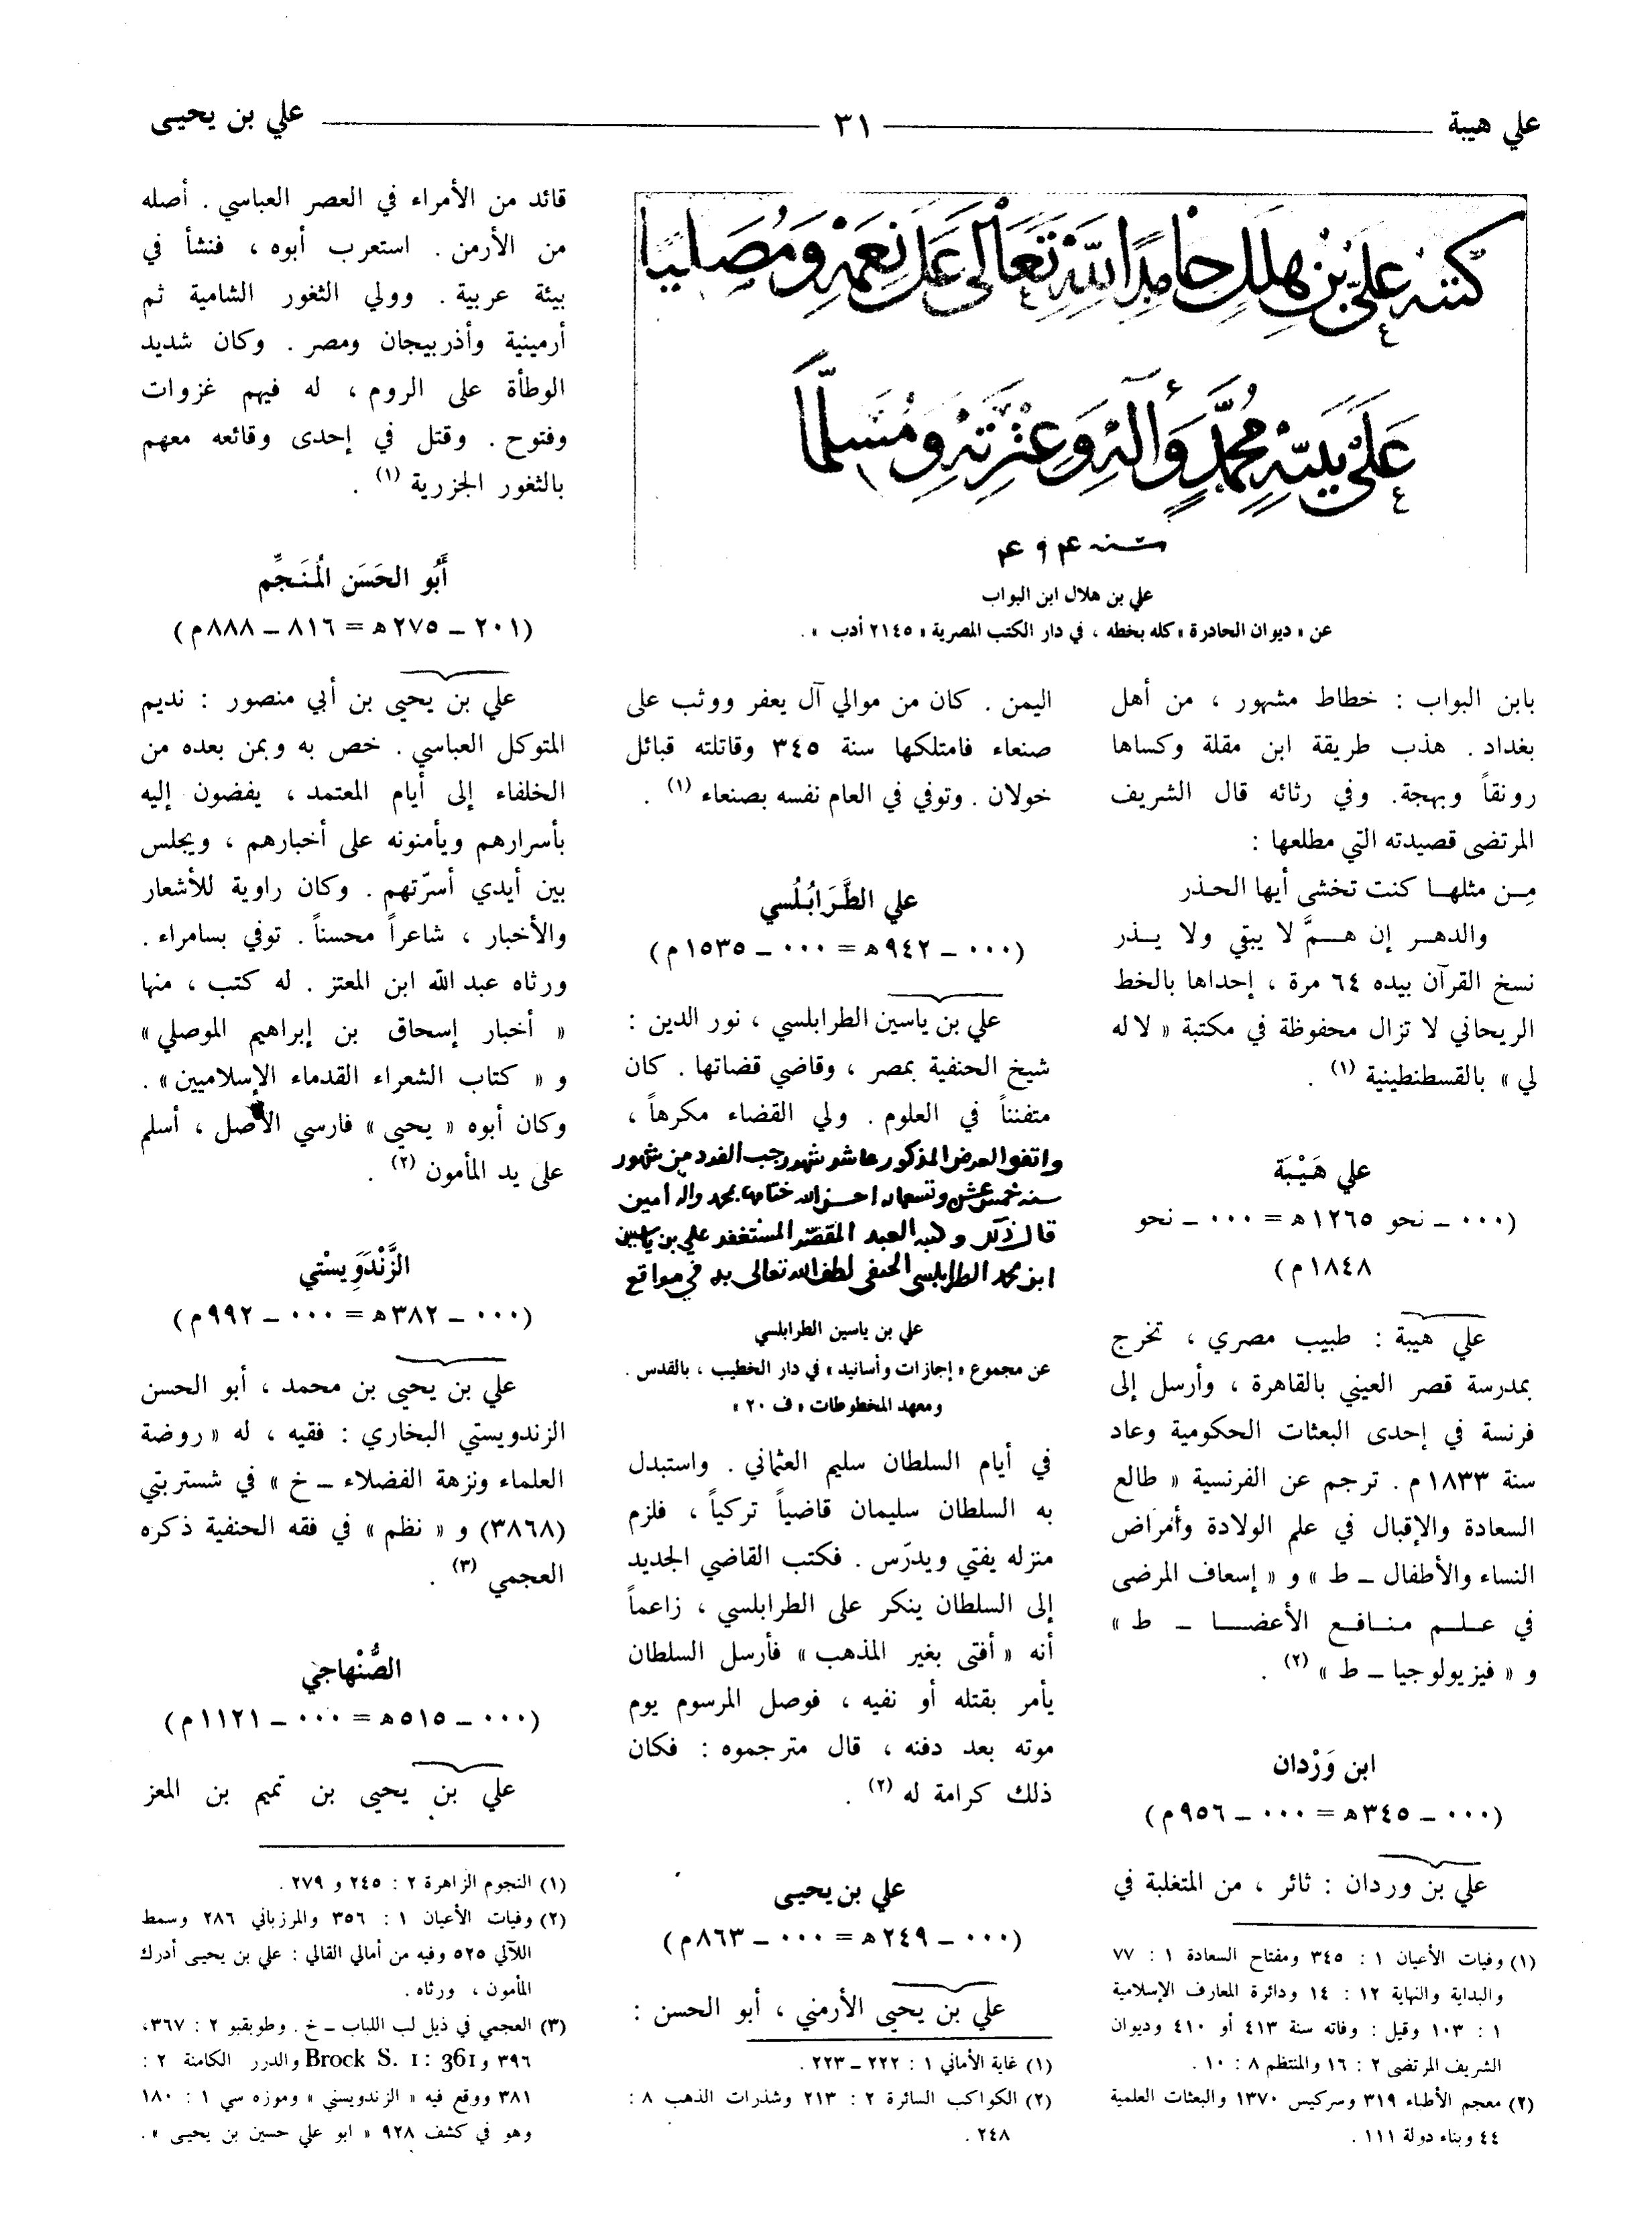 علي هيبة
٣١
علي بن يحيى
كتبه علي بن هلال حامدا لله تعالى على نعمه ومصليا
على نبيه محمد وآله وعترته ومسلما
علي بن هلال ابن البواب
عن « ديوان الحادرة » كله بخطه ، في دار الكتب المصرية « ٢١٤٥ أدب » .
بابن البواب : خطاط مشهور ، من أهل
بغداد . هذب طريقة ابن مقلة وكساها
رونقاً وبهجة. وفي رثائه قال الشريف
المرتضى قصيدته التي مطلعها :
مِـن مثلهـا كنت تخشى أيها الحـذر
والدهـر إن هـمَّ لا يبقي ولا يـذر
نسخ القرآن بيده ٦٤ مرة ، إحداها بالخط
الريحاني لا تزال محفوظة في مكتبة « لاله
لي » بالقسطنطينية (١) .
علي هَيْبَة
(٠٠٠ ــ نحو ١٢٦٥ه = ٠٠٠ ــ نحو
١٨٤٨م)
علي هيبة : طبيب مصري ، تخرج
بمدرسة قصر العيني بالقاهرة ، وأرسل إلى
فرنسة في إحدى البعثات الحكومية وعاد
سنة ١٨٣٣م . ترجم عن الفرنسية « طالع
السعادة والإقبال في علم الولادة وأمراض
النساء والأطفال ــ ط » و « إسعاف المرضى
في علـم منـافـع الأعضـا ــ ط »
و « فيزيولوجيا ــ ط » (٢) .
ابن وَرْدان
(٠٠٠ ــ ٣٤٥ه = ٠٠٠ ــ ٩٥٦م)
علي بن وردان : ثائر ، من المتغلبة في
(١) وفيات الأعيان ١ : ٣٤٥ ومفتاح السعادة ١ : ٧٧
والبداية والنهاية ١٢ : ١٤ ودائرة المعارف الإسلامية
١ : ١٠٣ وقيل : وفاته سنة ٤١٣ أو ٤١٠ وديوان
الشريف المرتضى ٢ : ١٦ والمنتظم ٨ : ١٠ .
(٢) معجم الأطباء ٣١٩ وسركيس ١٣٧٠ والبعثات العلمية
٤٤ وبناء دولة ١١١ .
اليمن . كان من موالي آل يعفر ووثب على
صنعاء فامتلكها سنة ٣٤٥ وقاتلته قبائل
خولان . وتوفي في العام نفسه بصنعاء (١) .
علي الطَّرَابُلُسي
(٠٠٠ ــ ٩٤٢ه = ٠٠٠ ــ ١٥٣٥م)
علي بن ياسين الطرابلسي ، نور الدين :
شيخ الحنفية بمصر ، وقاضي قضاتها . كان
متفنناً في العلوم . ولي القضاء مكرهاً ،
واتفق العرض المذكور عاشر شهر رجب الفرد من شهور
سنة خمس عشر وتسعمائة احسن الله ختامها بمحمد واله امين
قال ذلك وكتبه العبد المقصر المستغفر علي بن ياسين
ابن محمد الطرابلسي الحنفي لطف الله تعالى به في مواقع
علي بن ياسين الطرابلسي
عن مجموع « إجازات وأسانيد » في دار الخطيب ، بالقدس .
ومعهد المخطوطات « ف ٢٠ »
في أيام السلطان سليم العثماني . واستبدل
به السلطان سليمان قاضياً تركياً ، فلزم
منزله يفتي ويدرّس . فكتب القاضي الجديد
إلى السلطان ينكر على الطرابلسي ، زاعماً
أنه « أفتى بغير المذهب » فأرسل السلطان
يأمر بقتله أو نفيه ، فوصل المرسوم يوم
موته بعد دفنه ، قال مترجموه : فكان
ذلك كرامة له (٢) .
علي بن يحيى
(٠٠٠ ــ ٢٤٩ه = ٠٠٠ ــ ٨٦٣م)
علي بن يحيى الأرمني ، أبو الحسن :
(١) غاية الأماني ١ : ٢٢٢ ــ ٢٢٣ .
(٢) الكواكب السائرة ٢ : ٢١٣ وشذرات الذهب ٨ :
٢٤٨ .
قائد من الأمراء في العصر العباسي . أصله
من الأرمن . استعرب أبوه ، فنشأ في
بيئة عربية . وولي الثغور الشامية ثم
أرمينية وأذربيجان ومصر . وكان شديد
الوطأة على الروم ، له فيهم غزوات
وفتوح . وقتل في إحدى وقائعه معهم
بالثغور الجزرية (١) .
أَبُو الحَسَن المُنَجِّم
(٢٠١ ــ ٢٧٥ه = ٨١٦ ــ ٨٨٨م)
علي بن يحيى بن أبي منصور : نديم
المتوكل العباسي . خص به وبمن بعده من
الخلفاء إلى أيام المعتمد ، يفضون إليه
بأسرارهم ويأمنونه على أخبارهم ، ويجلس
بين أيدي أسرّتهم . وكان راوية للأشعار
والأخبار ، شاعراً محسناً . توفي بسامراء .
ورثاه عبد الله ابن المعتز . له كتب ، منها
« أخبار إسحاق بن إبراهيم الموصلي »
و « كتاب الشعراء القدماء الإسلاميين » .
وكان أبوه « يحيى » فارسي الأصل ، أسلم
على يد المأمون (٢) .
الزَّنْدَوِيسْتي
(٠٠٠ ــ ٣٨٢ه = ٠٠٠ ــ ٩٩٢م)
علي بن يحيى بن محمد ، أبو الحسن
الزندويستي البخاري : فقيه ، له « روضة
العلماء ونزهة الفضلاء ــ خ » في شستربتي
(٣٨٦٨) و « نظم » في فقه الحنفية ذكره
العجمي (٣) .
الصُّنْهاجي
(٠٠٠ ــ ٥١٥ه = ٠٠٠ ــ ١١٢١م)
علي بن يحيى بن تميم بن المعز
(١) النجوم الزاهرة ٢ : ٢٤٥ و ٢٧٩ .
(٢) وفيات الأعيان ١ : ٣٥٦ والمرزباني ٢٨٦ وسمط
اللآلي ٥٢٥ وفيه من أمالي القالي : علي بن يحيى أدرك
المأمون ، ورثاه .
(٣) العجمي في ذيل لب اللباب ــ خ . وطوبقبو ٢ : ٣٦٧،
٣٩٦ و Brock S. 1: 361 والدرر الكامنة ٢ :
٣٨١ ووقع فيه « الزندويسني » وموزه سي ١ : ١٨٠
وهو في كشف ٩٢٨ « ابو علي حسين بن يحيى » .